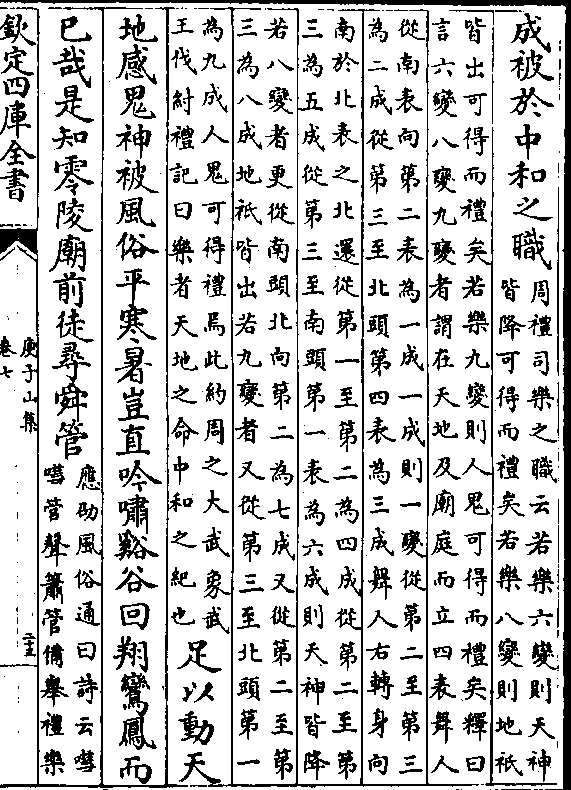 成被於中和之職
周禮司樂之職云若樂六變則天神
皆降可得而禮矣若樂八變則地祇
皆出可得而禮矣若樂九變則人鬼可得而禮矣釋曰
言六變八變九變者謂在天地及廟庭而立四表舞人
從南表向第二表為一成一成則一變從第二至第三
為二成從第三至北頭第四表為三成舞人右轉身向
南於北表之北還從第一至第二為四成從第二至第
三為五成從第三至南頭第一表為六成則天神皆降
若八變者更從南頭北向第二為七成又從第二至第
三為八成地祇皆出若九變者又從第三至北頭第一
為九成人鬼可得禮焉此約周之大武象武
王伐紂禮記曰樂者天地之命中和之紀也
足以動天
地感鬼神被風俗平寒暑豈直吟嘯谿谷回翔鸞鳳而
已哉是知零陵廟前徒尋舜管
應劭風俗通曰詩云嘒
嘒管聲簫管備舉禮樂
欽定四庫全書
庾子山集
卷七
二十五